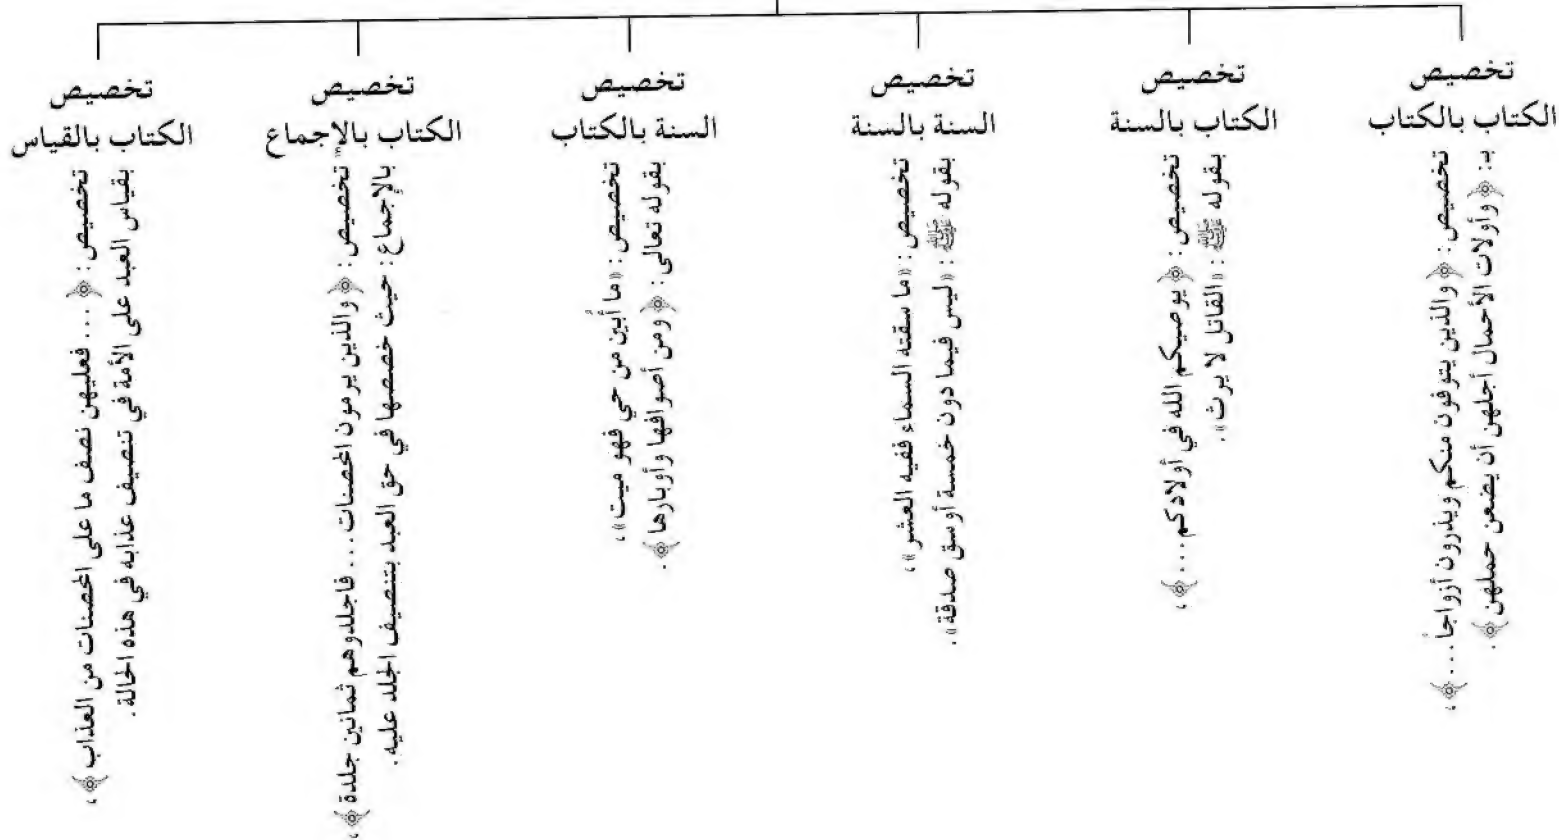 تخصيص
الكتاب بالكتاب
تخصيص: ﴿والذين يتوفون منكم ويذرون أزواجاً...﴾،
بـ: ﴿وأولات الأحمال أجلهن أن يضعن حملهن﴾.
تخصيص
الكتاب بالسنة
تخصيص: ﴿يوصيكم الله في أولادكم...﴾،
بقوله ﷺ: «القاتل لا يرث».
تخصيص
السنة بالسنة
تخصيص: «ما سقته السماء ففيه العشر»،
بقوله ﷺ: «ليس فيما دون خمسة أوسق صدقة».
تخصيص
السنة بالكتاب
تخصيص: «ما أُبين من حي فهو ميت»،
بقوله تعالى: ﴿ومن أصوافها وأوبارها﴾.
تخصيص
الكتاب بالإجماع
تخصيص: ﴿والذين يرمون المحصنات... فاجلدوهم ثمانين جلدة﴾،
بالإجماع: حيث خصصها في حق العبد بتنصيف الجلد عليه.
تخصيص
الكتاب بالقياس
تخصيص: ﴿.... فعليهن نصف ما على المحصنات من العذاب﴾،
بقياس العبد على الأمة في تنصيف عذابه في هذه الحالة.